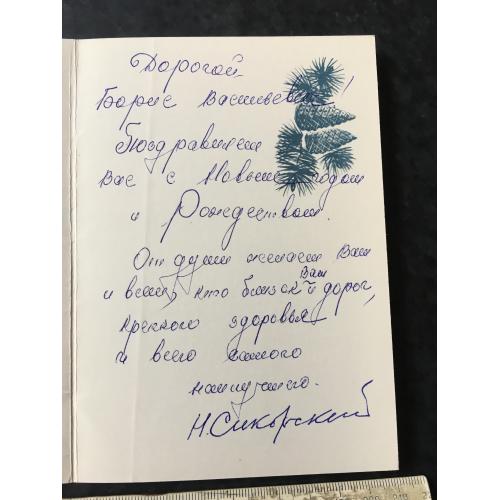 Дорогой
Борис Васильевич!
Поздравляем
Вас с Новым годом
и Рождеством.
От души желаем Вам
и всем, кто близок Вам и дорог,
крепкого здоровья
и всего самого
наилучшего.
Н. Сикорский